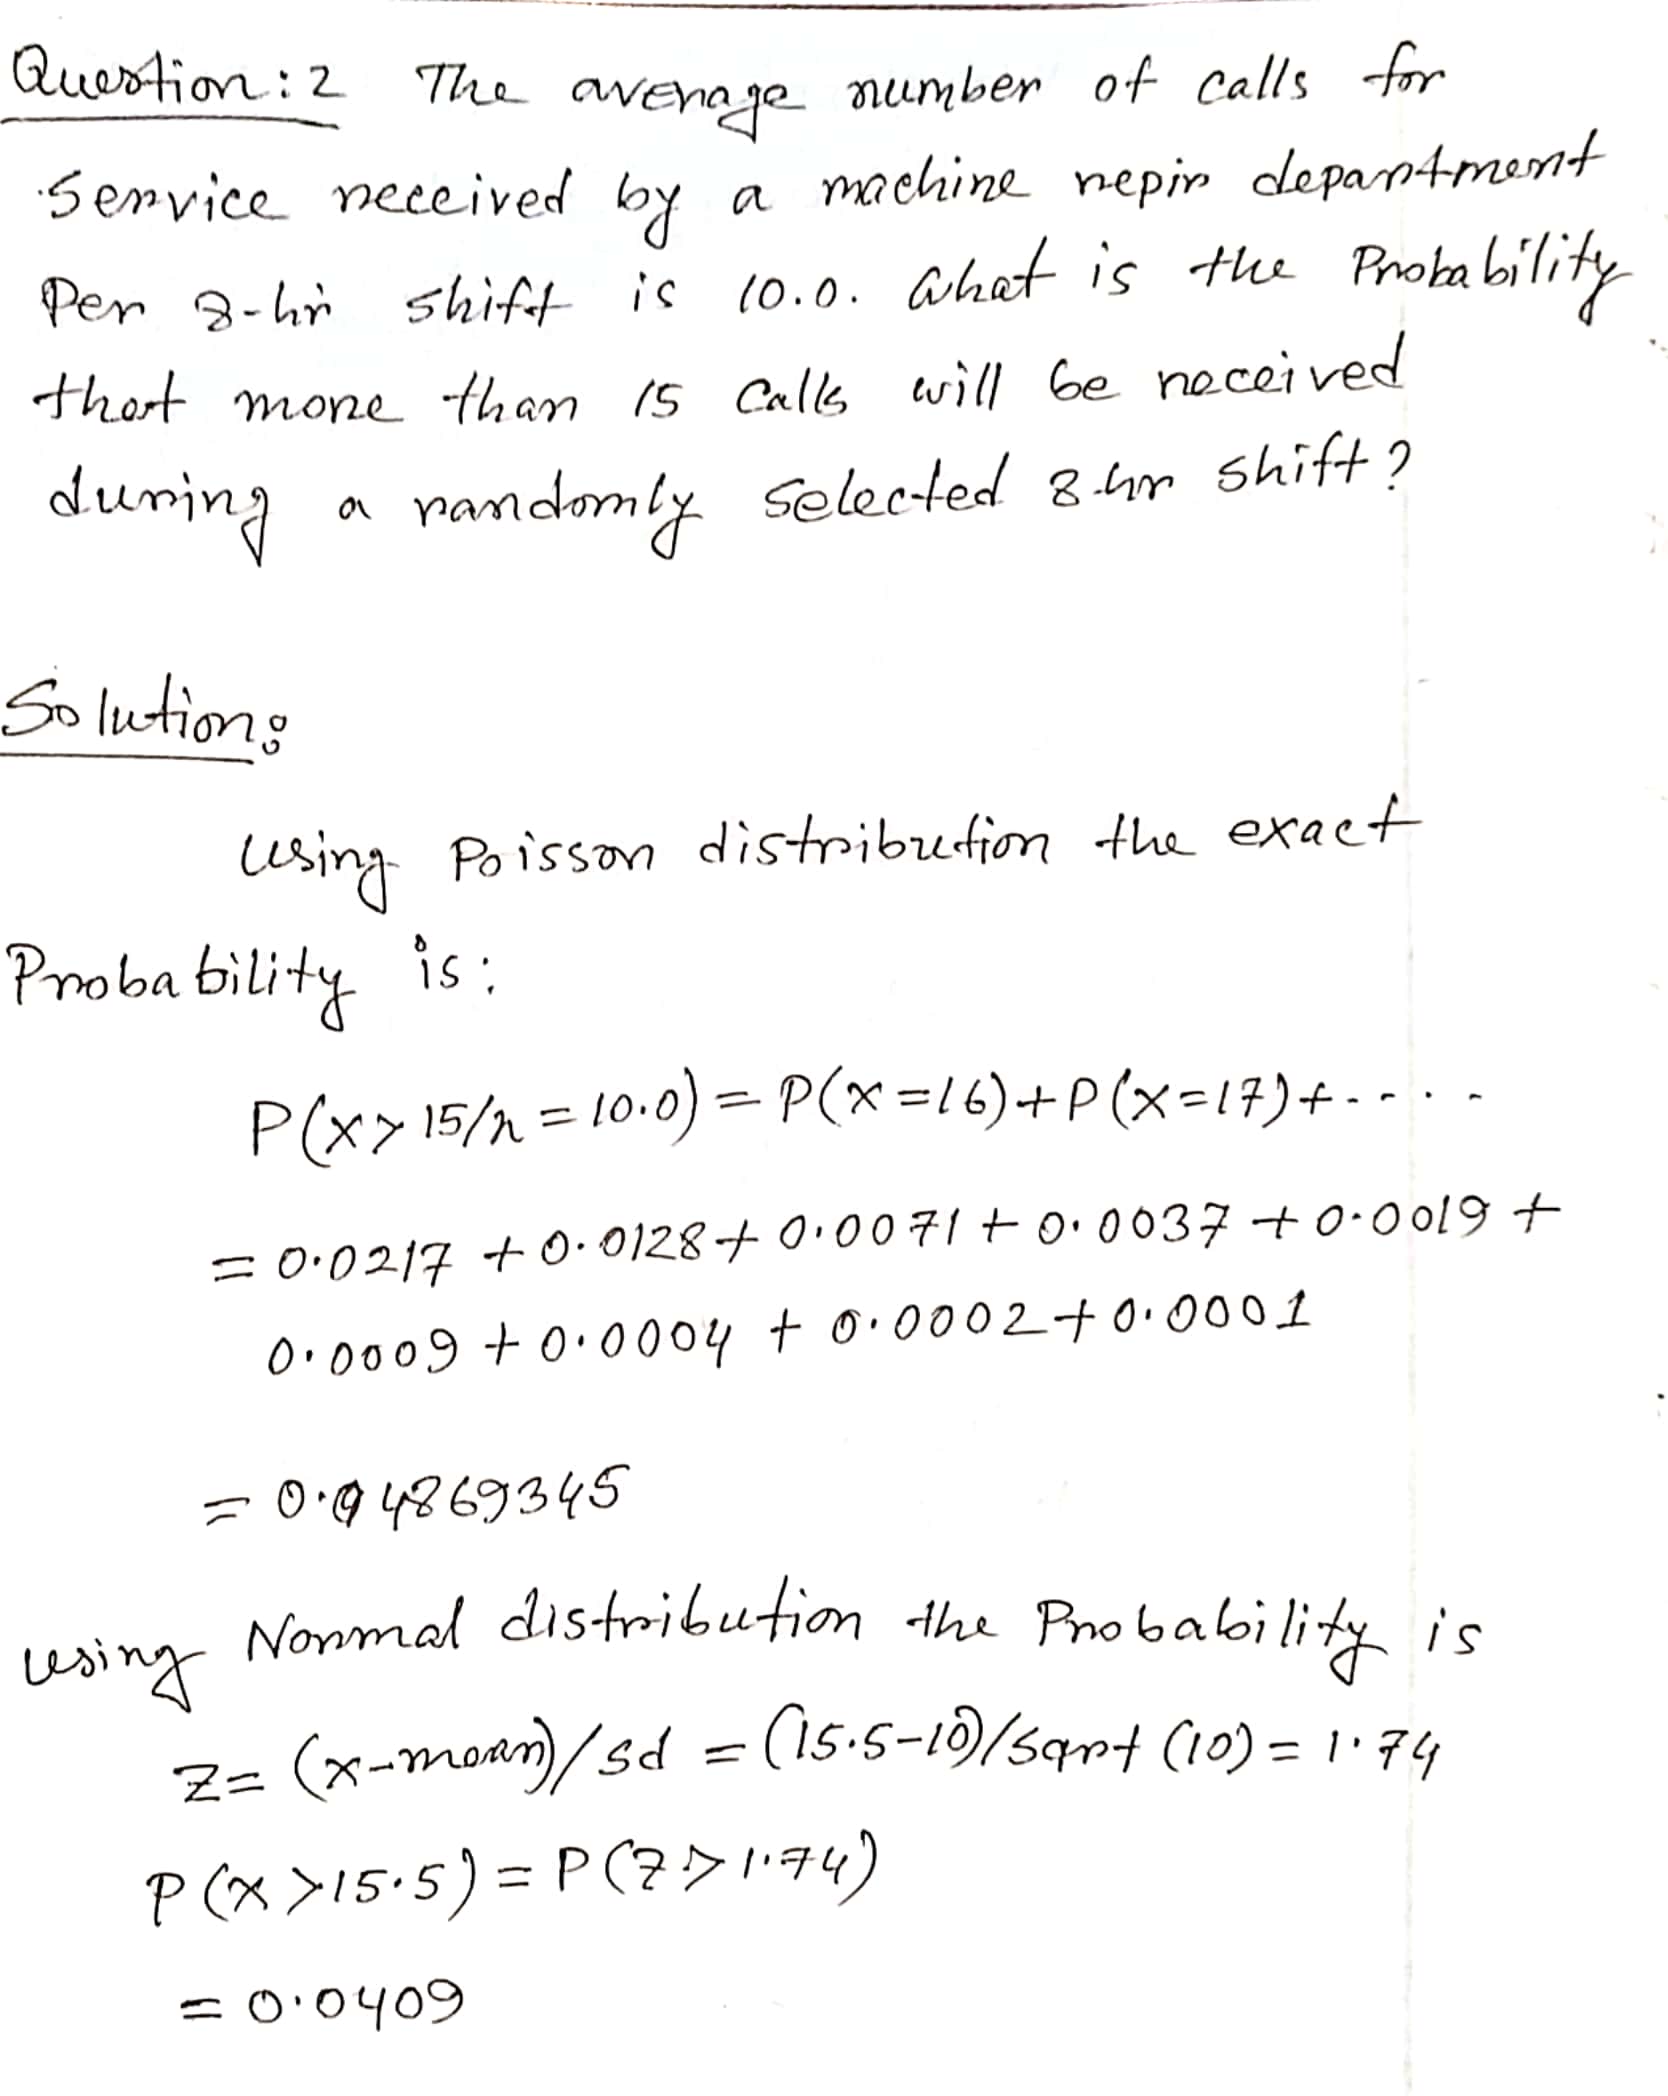 Question: 2 The average number of calls for
service received by a machine repir department
Per 8-hr shift is 10.0. What is the Probability
that more than 15 calls will be received
during a randomly selected 8-hr shift?
Solution:
Using Poisson distribution the exact
Probability is:
P(X > 15/λ = 10.0) = P(X = 16) + P(X = 17) + .....
= 0.0217 + 0.0128 + 0.0071 + 0.0037 + 0.0019 +
0.0009 + 0.0004 + 0.0002 + 0.0001
= 0.04869345
using Normal distribution the Probability is
Z = (x-mean)/sd = (15.5-10)/sqrt (10) = 1.74
P(X > 15.5) = P(Z > 1.74)
= 0.0409